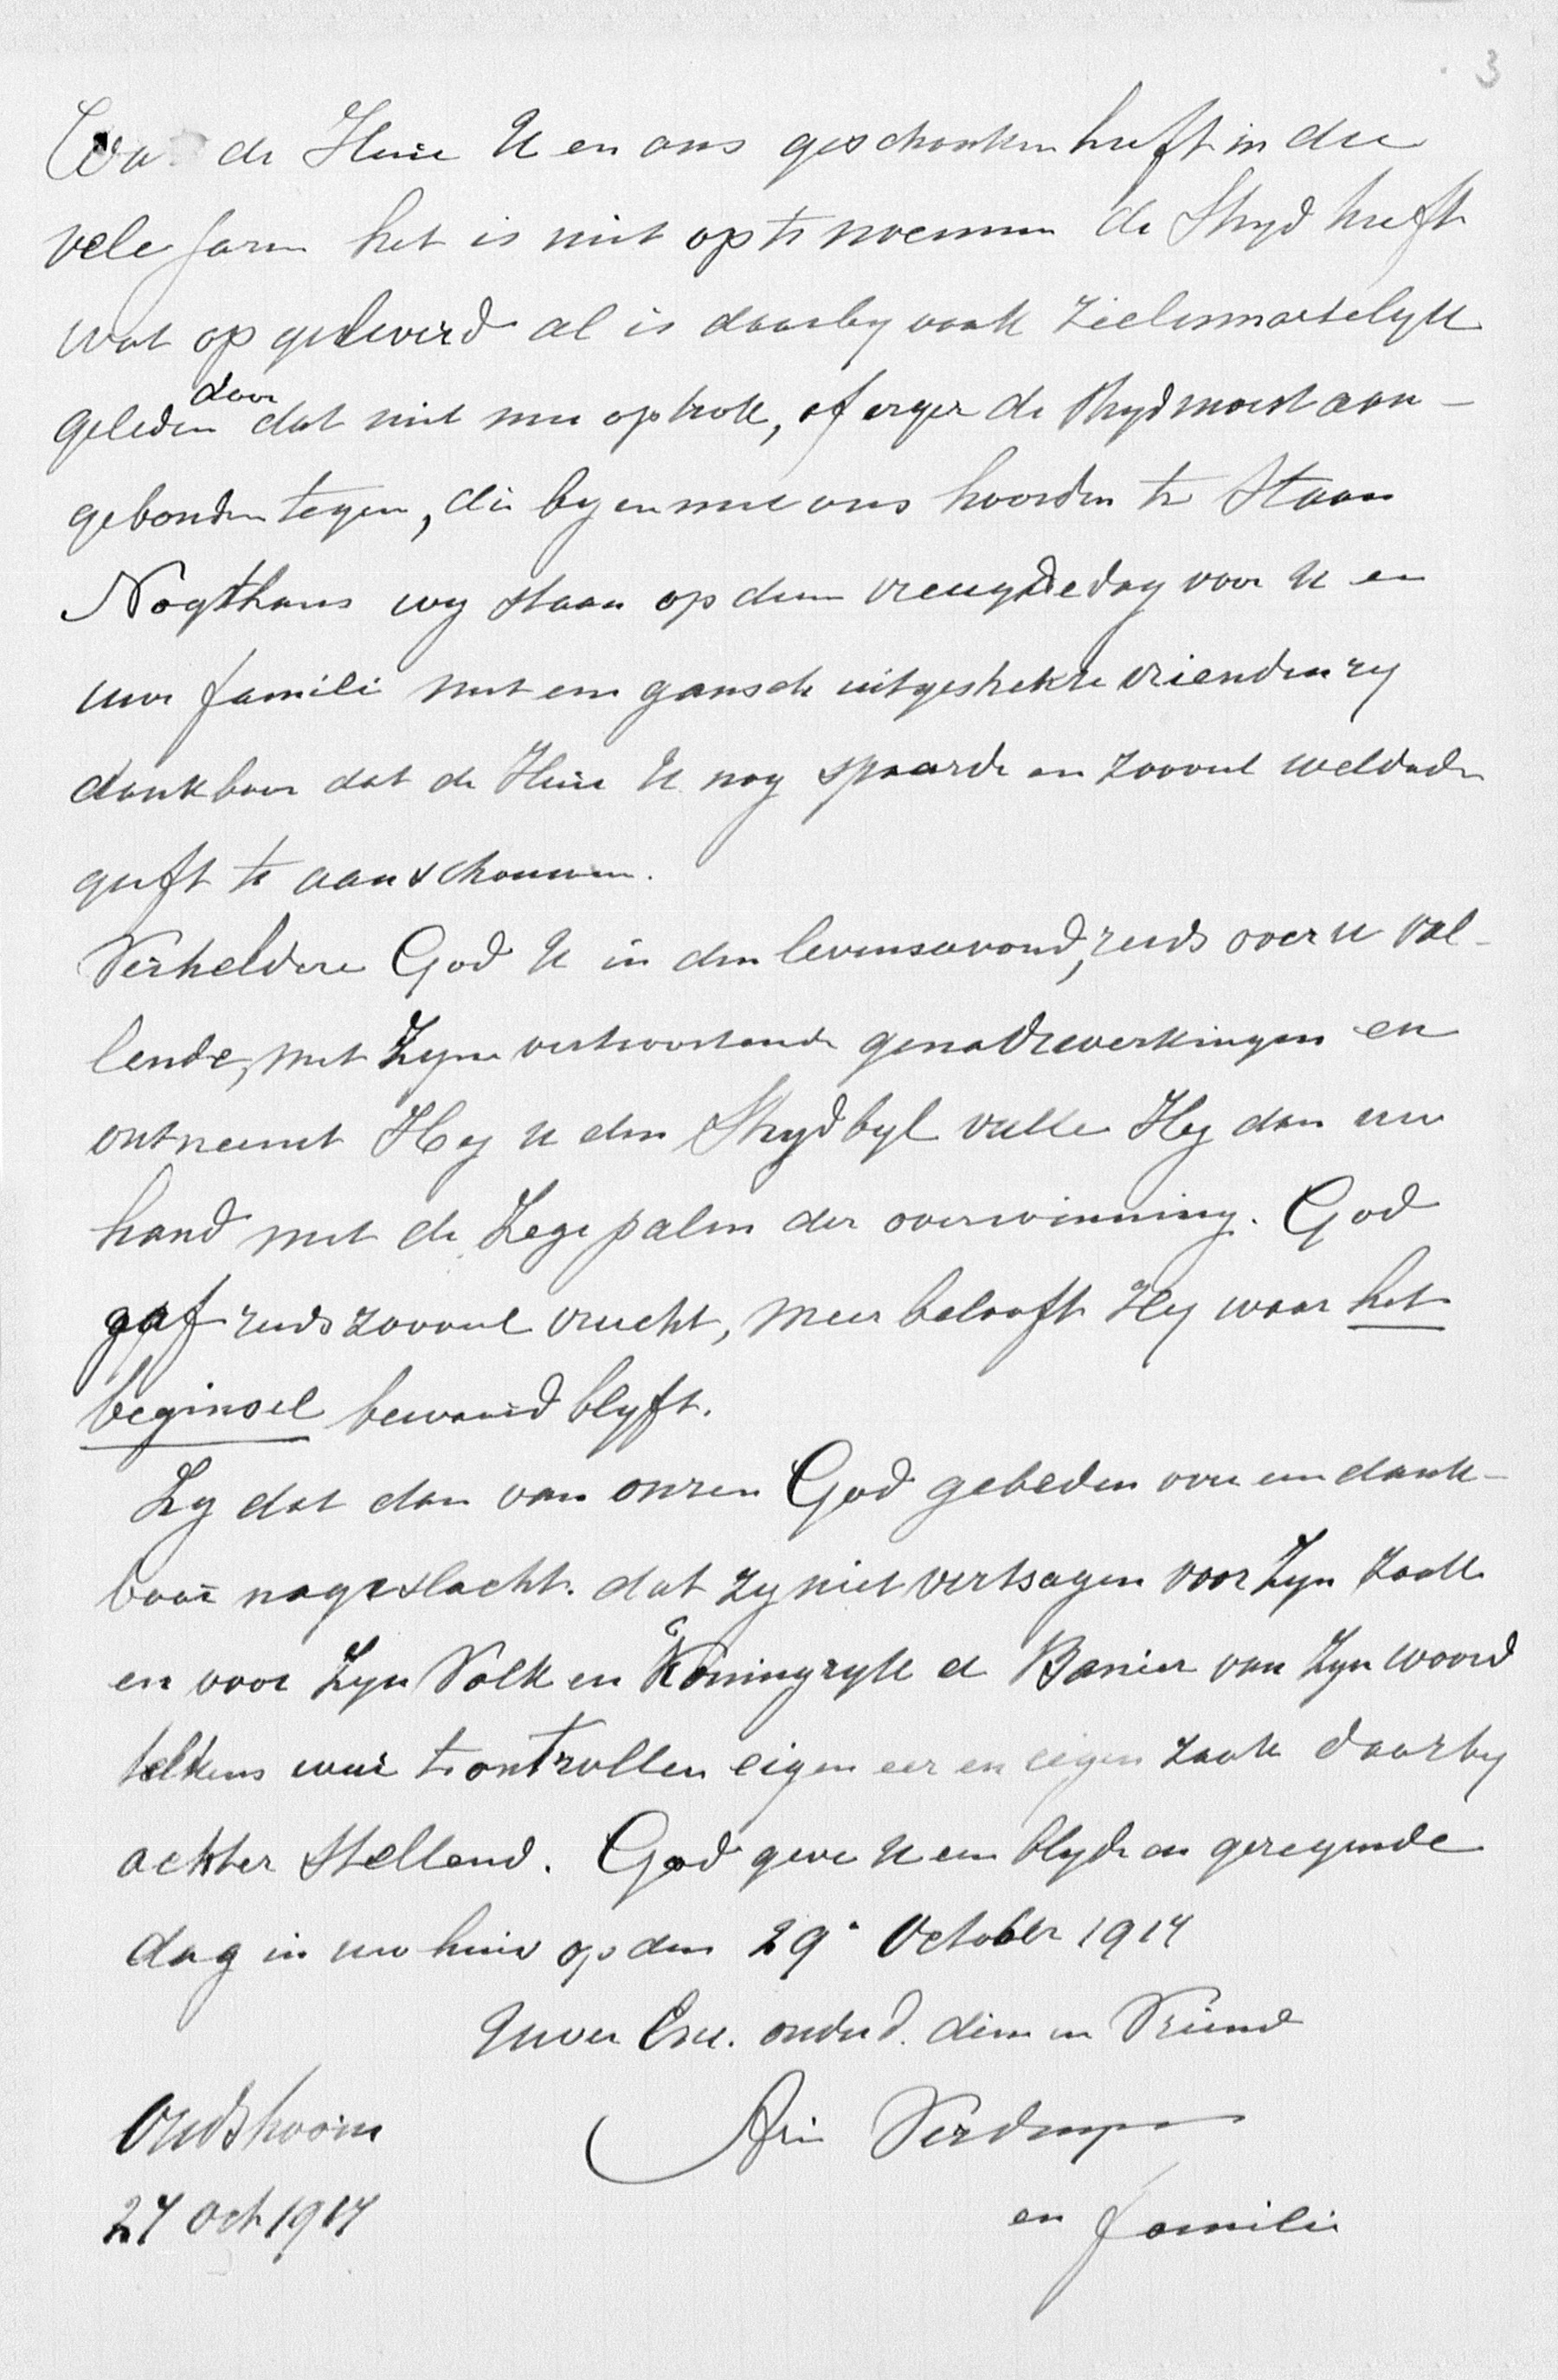 3
Wat de Heere U en ons geschonken heeft in die
vele jaren het is niet op te noemen de Stryd heeft
wat opgeleverd al is daarby vaak zielesmartelyk
geleden door dat niet mee optrok, of erger de Stryd moest aan-
gebonden tegen, die by en met ons hoorden te staan
Nogthans wy staan op dien vreugdedag voor U en
uwe familie met een gansch uitgestrekte vriendenry
dankbaar dat de Heere U nog spaarde en zooveel weldaden
geeft te aanschouwen.
Verheldere God U in den levensavond, reeds over u val-
lende, met Zyne vertroostende genadewerkingen en
ontneemt Hy u den Strydbyl vulle Hy dan uw
hand met de Zegepalm der overwinning. God
gaf reeds zooveel vrucht, meer belooft Hy waar het
beginsel bewaard blyft.
Zy dat dan van onzen God gebeden over een dank-
baar nageslacht. dat zy niet vertsagen voor Zyn zaak
en voor Zyn Volk en Koningryk de Banier van Zyn woord
telkens weer te ontrollen eigen eer en eigen zaak daarby
achter stellend. God geve U een blyde en gezegende
dag in uw huis op den 29e October 1917
Uwer Exc. onderd. dien en Vriend
Oudshoorn
Arie
27 Oct 1917
en familie